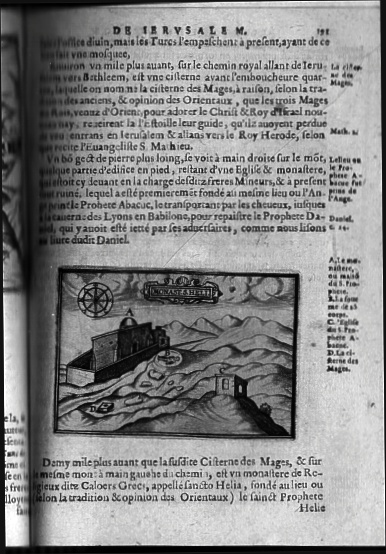 DE IERVSALEM. 191
l'office diuin, mais les Turcs l'empeschent à present, ayant de ce
fait vne mosquee,
Enuiron vn mile plus auant, sur le chemin royal allant de Ieru-
vers Bethleem, est vne cisterne ayant l'emboucheure quar-
laquelle on nomme la cisterne des Mages, à raison, selon la tra-
des anciens, & opinion des Orientaux, que les trois Mages
venus d'Orient, pour adorer le Christ & Roy d'Israel nou-
nay, l'Estoille leur guide, qu'ilz auoyent perdue
entrans en Ierusalem & allans vers le Roy Herode, selon
recite l'Euangeliste S. Mathieu.
Vn bõ gect de pierre plus loing, se voit à main droite sur le mõt,
quelque partie d'edifice en pied, restant d'vne Eglise & monastere,
estoit cy deuant en la charge desditz freres Mineurs, & à present
ruiné, lequel a esté premieremẽt fondé au mesme lieu ou l'An-
print le Prophete Abacuc, le transportant par les cheueux, iusques
la cauerne des Lyons en Babilone, pour repaistre le Prophete Da-
qui y auoit esté ietté par ses aduersaires, comme nous lisons
liure dudit Daniel.
La cister-
ne des
Mages.
Math. 2.
Le lieu ou
le Pro-
phete A-
bacuc fut
prins de
l'Ange.
Daniel.
A. Le mo-
nastere,
du S. Pro-
phete.
C. l'Eglise
du S. Pro-
phete A-
bacuc.
D. La ci-
sterne des
Mages.
MONAST. S. HELI
A
Demy mile plus auant que la susdite Cisterne des Mages, & sur
mesme mont à main gauche du chemin, est vn monastere de Re-
ligieux ditz Caloers Grecz, appellé sancto Helia, fondé au lieu ou
selon la tradition & opinion des Orientaux) le sainct Prophete
Helie